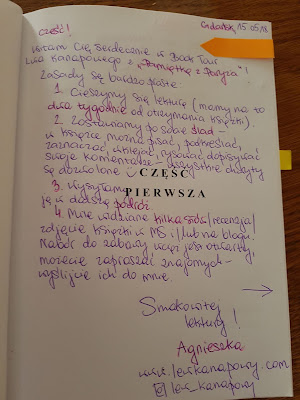 CZEŚĆ! Gdańsk, 15.05.18
Witam Cię serdecznie w Book Tour
Lwa Kanapowego z „Pamiątkę z Paryża"!
Zasady są bardzo proste:
1. Cieszymy się lekturą (mamy na to
dwa tygodnie od otrzymania książki).
2. Zostawiamy po sobie ślad –
w książce można pisać, podkreślać,
zaznaczać, wklejać, rysować, dopisywać
swoje komentarze – wszystkie chwyty
są dozwolone
CZĘŚĆ
PIERWSZA
3. Wysyłamy
ją w dalszą podróż
4. Mile widziane kilka słów/recenzja/
zdjęcie książki w MS i/lub na blogu.
Nabór do zabawy wciąż jest otwarty,
możecie zapraszać znajomych –
wyślijcie ich do mnie.
Smakowitej
lektury!
Agnieszka
www.lewkanapowy.com
lew_kanapowy